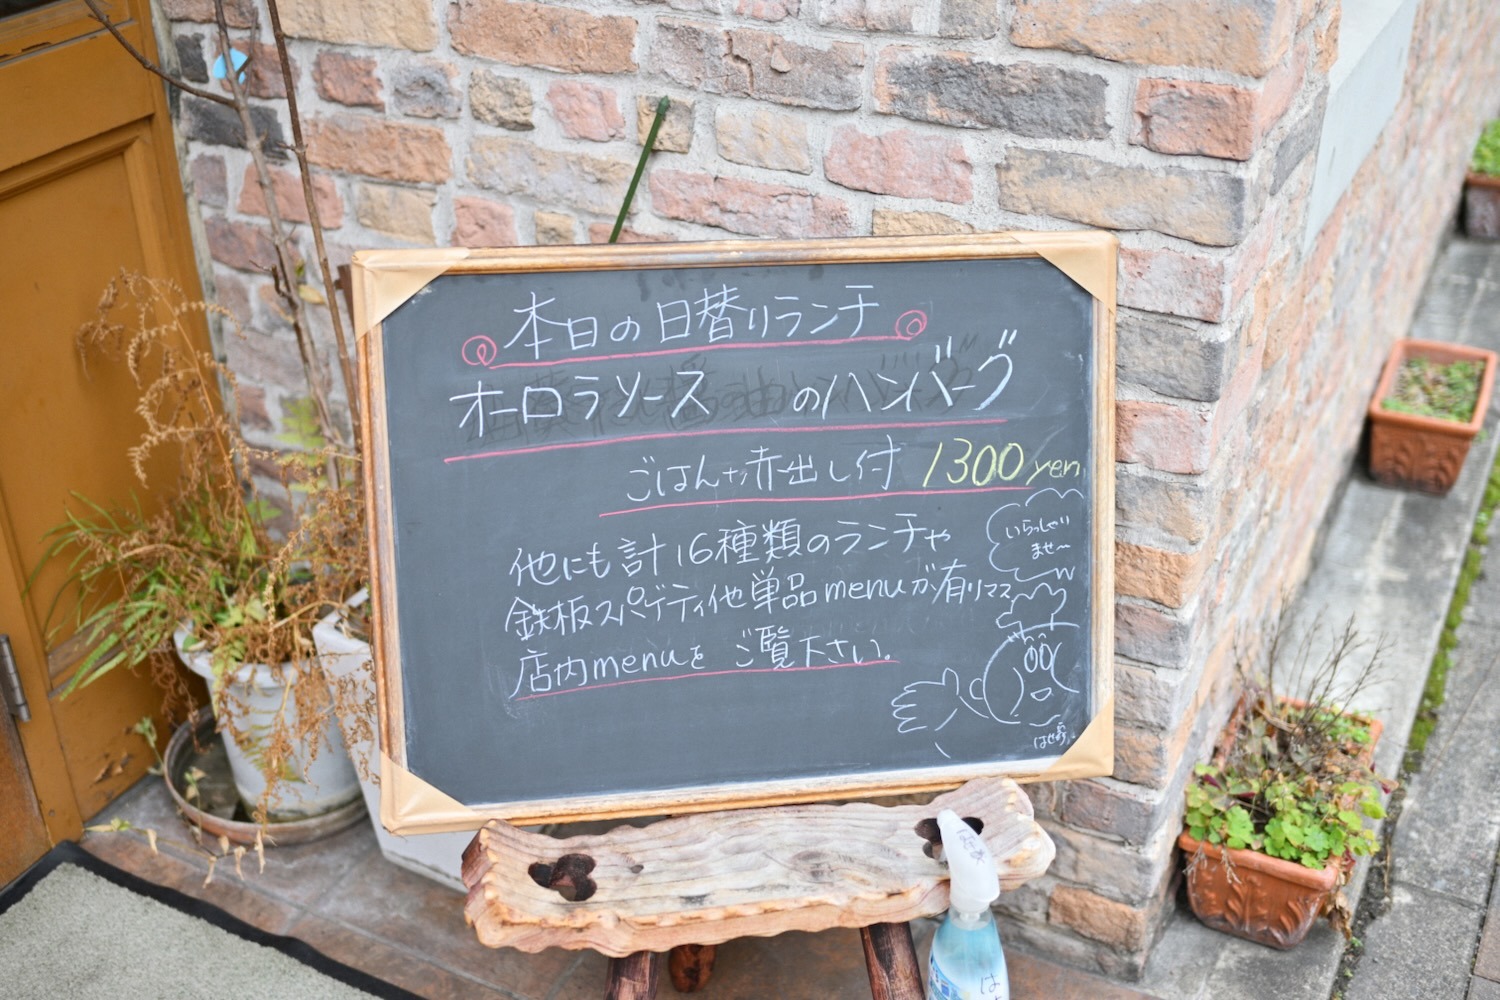 本日の日替りランチ
オーロラソースのハンバーグ
ごはん+赤出し付 1300yen
いらっしゃい
ませ〜
他にも計16種類のランチや
鉄板スパゲティ他単品menuが有リマス
店内menuを ご覧下さい。